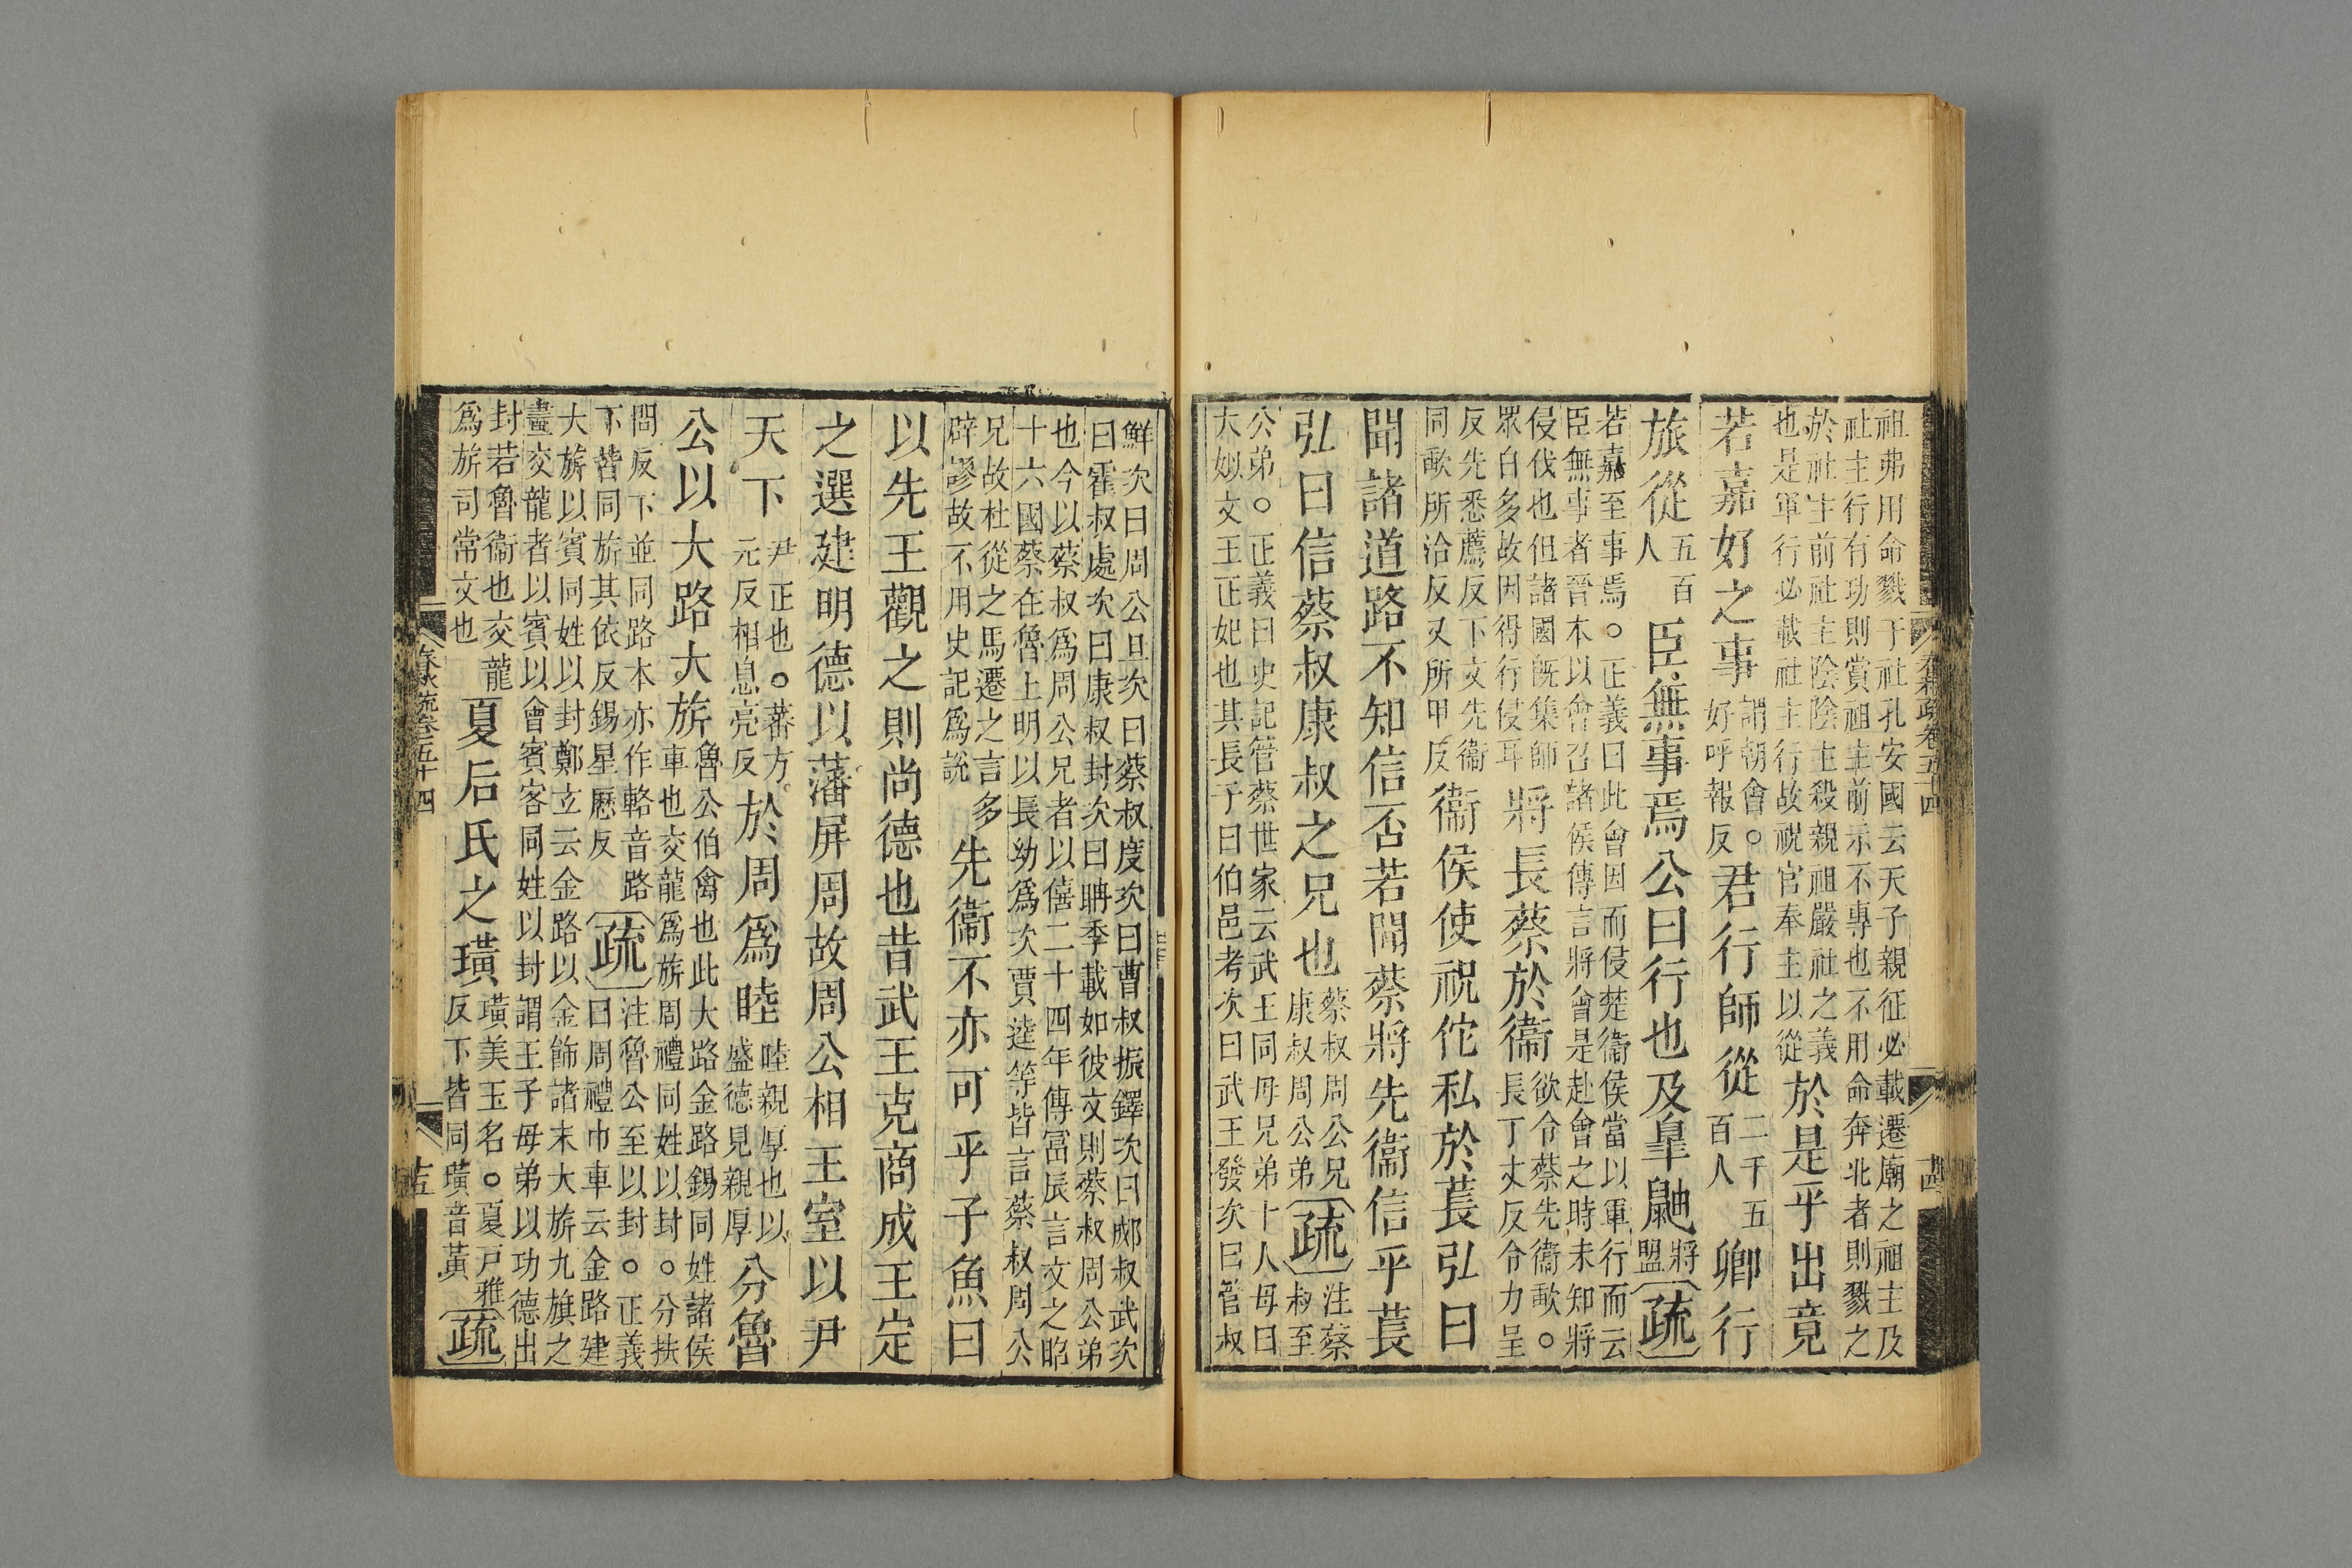 祖弗用命戮于社孔安國云天子親征必載遷廟之祖主及
社主行有功則賞祖主前示不專也不用命奔北者則戮之
於社主前社主陰陰主殺親祖嚴社之義
也是軍行必載社主行故祝官奉主以從
於是乎出竟
若嘉好之事
謂朝會○
好呼報反
君行師從
二千五
百人
卿行
旅從
五百
人
臣無事焉公曰行也及臯鼬
將
盟
疏
若嘉至事焉○正義曰此會因而侵楚衞侯當以軍行而云
臣無事者晉本以會召諸侯傳言將會是赴會之時未知將
侵伐也但諸國旣集師
眾自多故因得行侵耳
將長蔡於衞
欲令蔡先衞歃○
長丁丈反令力呈
反先悉薦反下文先衞
同歃所洽反又所甲反
衞侯使祝佗私於萇弘曰
聞諸道路不知信否若聞蔡將先衞信乎萇
弘曰信蔡叔康叔之兄也
蔡叔周公兄
康叔周公弟
疏
注蔡
叔至
公弟○正義曰史記管蔡世家云武王同母兄弟十人母曰
大姒文王正妃也其長子曰伯邑考次曰武王發次曰管叔
春秋疏卷五十四
十四
鮮次曰周公旦次曰蔡叔度次曰曹叔振鐸次曰郕叔武次
曰霍叔處次曰康叔封次曰聃季載如彼文則蔡叔周公弟
也今以蔡叔爲周公兄者以僖二十四年傳富辰言文之昭
十六國蔡在魯上明以長幼爲次賈逵等皆言蔡叔周公
兄故杜從之馬遷之言多
辟謬故不用史記爲說
先衞不亦可乎子魚曰
以先王觀之則尚德也昔武王克商成王定
之選建明德以藩屏周故周公相王室以尹
天下
尹正也○蕃方
元反相息亮反
於周爲睦
睦親厚也以
盛德見親厚
分魯
公以大路大旂
魯公伯禽也此大路金路錫同姓諸侯
車也交龍爲旂周禮同姓以封○分扶
問反下並同路本亦作輅音路
下皆同旂其依反錫星厯反
疏
注魯公至以封○正義
曰周禮巾車云金路建
大旂以賓同姓以封鄭玄云金路以金飾諸末大旂九旗之
畫交龍者以賓以會賓客同姓以封謂王子母弟以功德出
封若魯衞也交龍
爲旂司常文也
夏后氏之璜
璜美玉名○夏戸雅
反下皆同璜音黃
疏
春秋疏卷五十四
十五